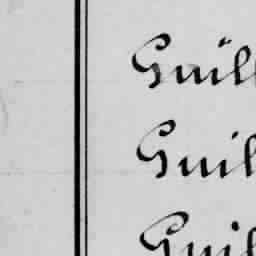 Guill
Guil
Guil